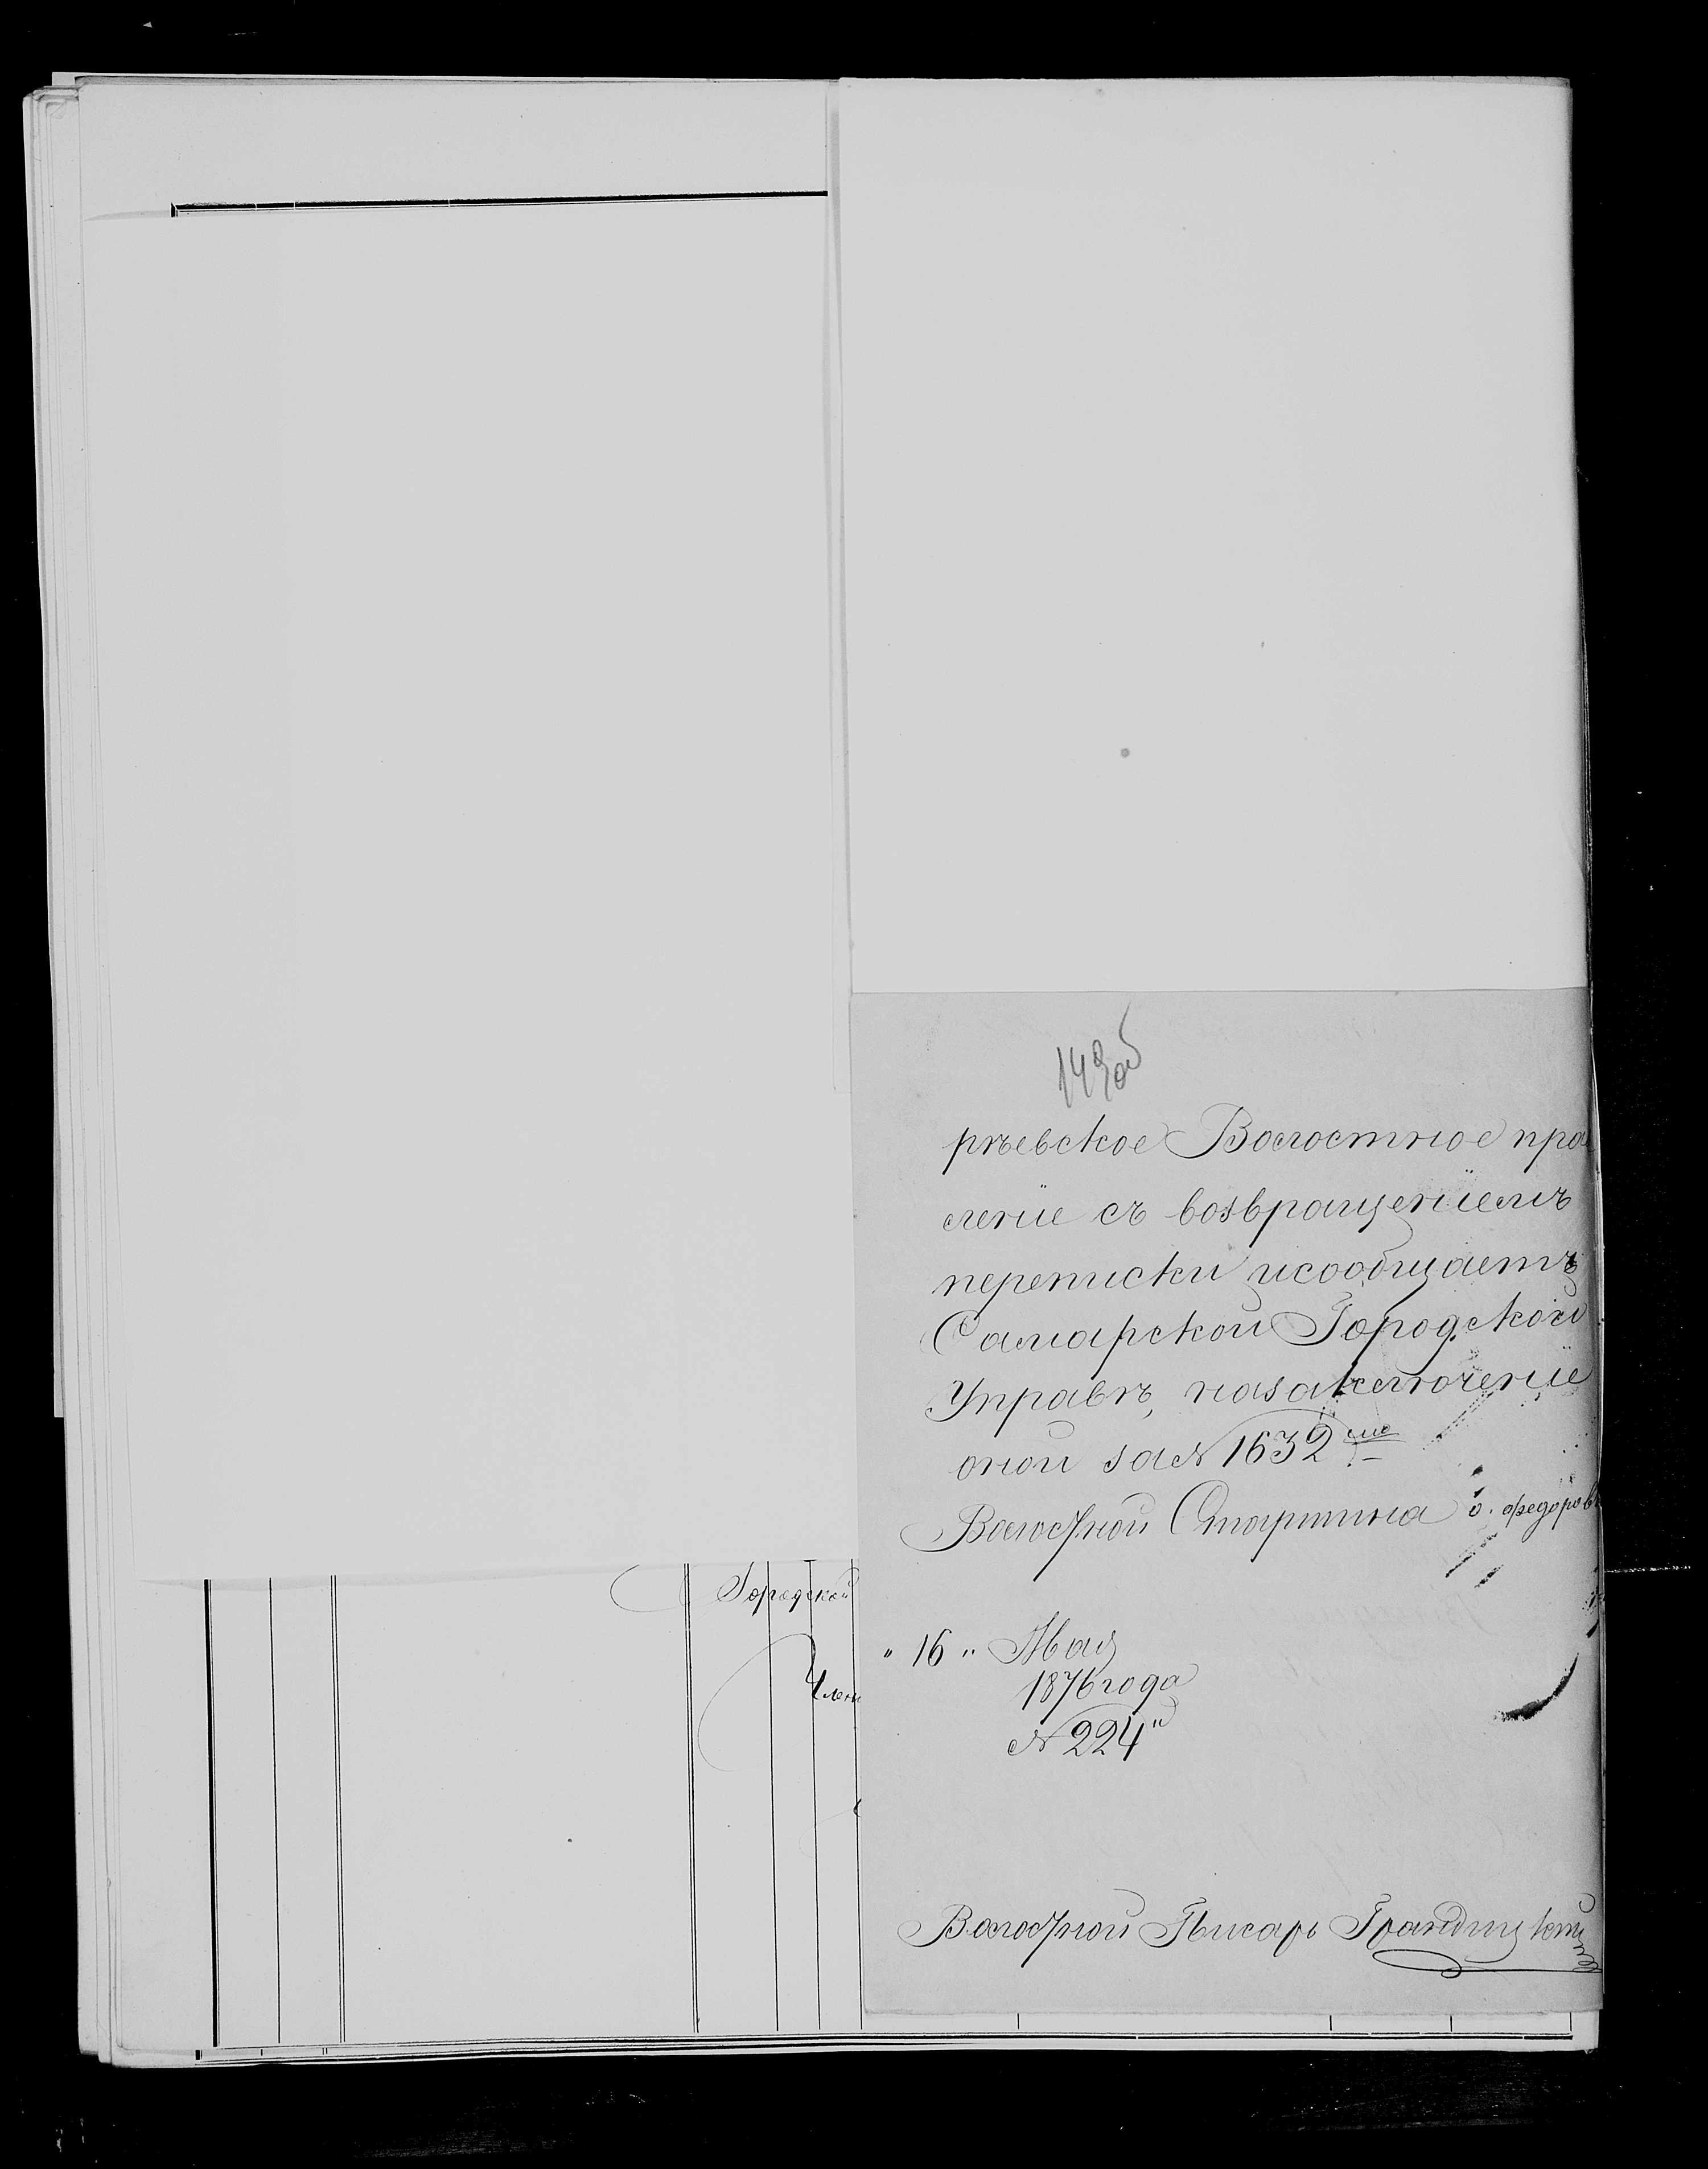 149об
рѣевское Волостное пра
ленiе съ возвращенiемъ
переписки исообщаетъ
Самарской Городской
Управѣ, назаключенiе
оной за № 1632 мъ
Волостной Старшина О. Федоров
"16" Мая
1876 года
№ 224"
Волостной Писарь
Городской
Члены